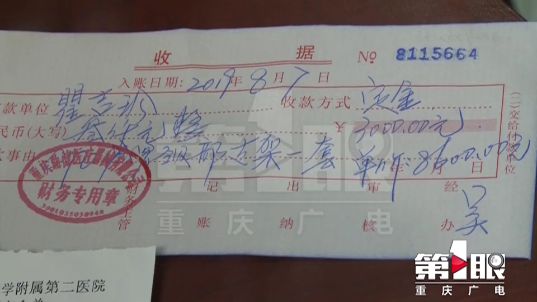 收 据 № 8115664
入账日期: 2019年8月7日
款单位 收款方式 定金
民币(大写) 叁仟元整 ¥ 3000.00元
事由 支架一套 单价: 8600.00元
年 月 日
财务专用章
财务主管 记账 出纳 审核 经办 吴
(二)交给付款单位
第1眼
重庆广电
学附属第二医院
第1眼
重庆广电